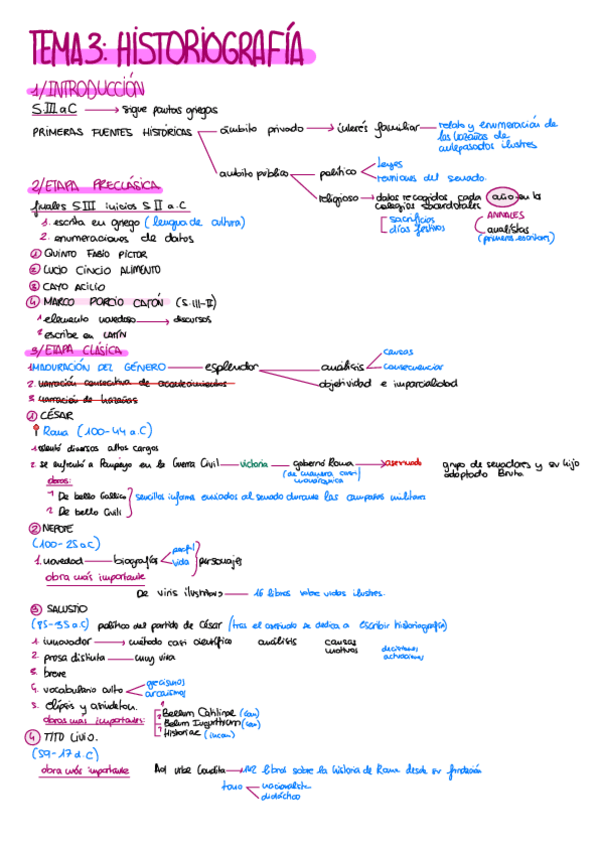 TEMA 3: HISTORIOGRAFÍA
1/ INTRODUCCIÓN
S.III a C → sigue pautas griegas
PRIMERAS FUENTES HISTÓRICAS
ámbito privado → interés familiar → relato y enumeración de las hazañas de antepasados ilustres
ámbito público
político
leyes
reuniones del senado.
religioso → datos recogidos cada año en los colegios sacerdotales
sacrificios
días festivos
ANNALES
analistas
(primeros escritores)
2/ ETAPA PRECLÁSICA
finales S III inicios S II a.C
1. escrita en griego (lengua de cultura)
2. enumeraciones de datos
① QUINTO FABIO PICTOR
② LUCIO CINCIO ALIMENTO
③ CAYO ACILIO
④ MARCO PORCIO CATÓN (S.III-II)
1 elemento novedoso → discursos
2 escribe en LATÍN
3/ ETAPA CLÁSICA
1. MADURACIÓN DEL GÉNERO — esplendor
análisis
causas
consecuencias
objetividad e imparcialidad
2. narración consecutiva de acontecimientos
3. narración de hazañas
① CÉSAR
Roma (100-44 a.C)
1. ostentó diversos altos cargos
2. se enfrentó a Pompeyo en la Guerra Civil — victoria — gobernó Roma → asesinado grupo de senadores y su hijo adoptado Bruto
(de manera casi monárquica)
obras:
1 De bello Gallico
2 De bello Civili
sencillos informes enviados al senado durante las campañas militares
② NEPOTE
(100-25 a.C)
1. novedad — biografías
perfil
vida
personajes
obra más importante
De viris ilustribus — 16 libros sobre vidas ilustres.
③ SALUSTIO
(85-35 a.C) político del partido de César (tras el asesinato se dedica a escribir historiografía)
1. innovador → método casi científico análisis causas motivos decisiones actuaciones
2. prosa distinta — muy viva
3. breve
4. vocabulario culto
grecismos
arcaísmos
5. elipsis y asíndeton.
obras más importantes:
1 Bellum Catilinae (con)
2 Belum Iugurthinum (con)
3 Historiae (incon)
④ TITO LIVIO.
(59-17 d.C)
obra más importante Ad urbe Condita → 142 libros sobre la historia de Roma desde su fundación
tono
nacionalista
didáctico